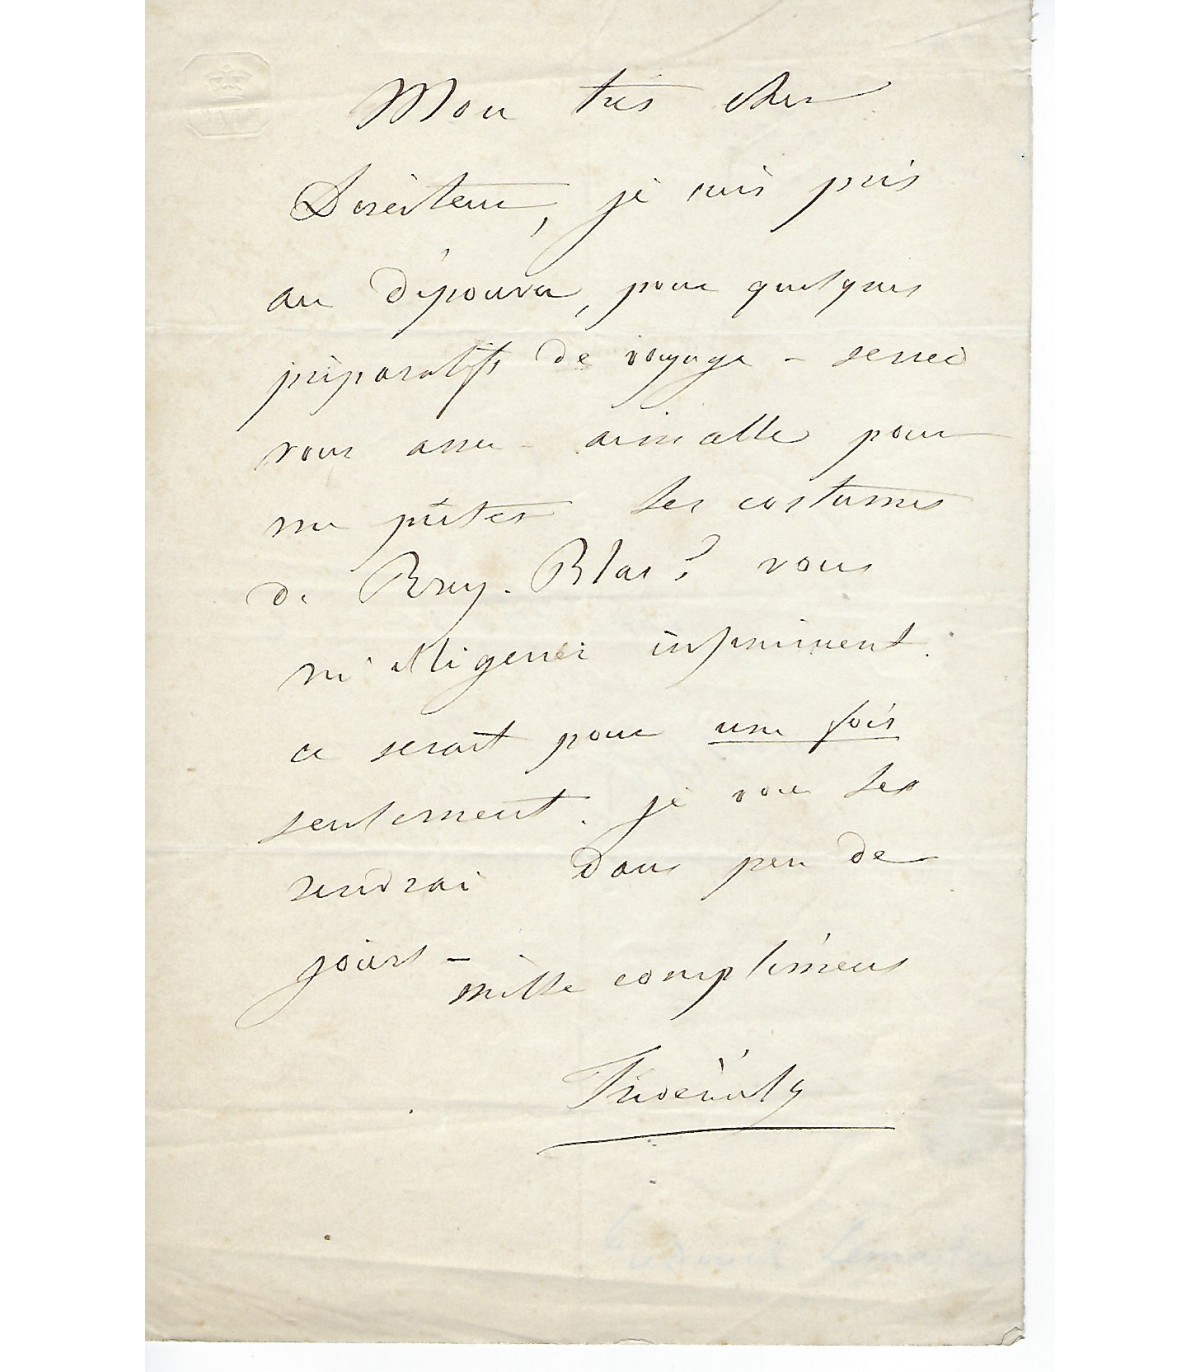 Mon très cher
Directeur, je suis pris
au dépourvu, pour quelques
préparatifs de voyage – seriez
vous assez – aimable pour
me prêter les costumes
de Ruy. Blas? vous
m'obligeriez infiniment.
ce serait pour une fois
seulement. je vous les
rendrai dans peu de
jours –
mille complimens
Frédérick
Frédérick Lemaître